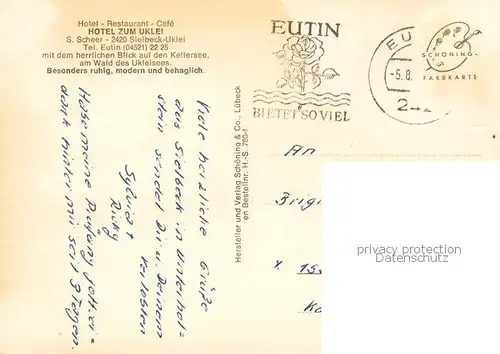 Hotel - Restaurant - Café
HOTEL ZUM UKLEI
S. Scheer - 2420 Sielbeck-Uklei
Tel. Eutin (04521) 22 25
mit dem herrlichen Blick auf den Kellersee,
am Wald des Ukleisees.
Besonders ruhig, modern und behaglich.
Viele herzliche Grüße
aus Sielbeck in Unterhol=
stein sendet Dir u. Deinem
Verlobten
Sylvia +
Ricky
Habe meine Prüfung Gott sei -
dank hinter mir seit 3 Tagen.
Hersteller und Verlag Schöning & Co., Lübeck
en Bestellnr. H.-S. 760-f
EUTIN
BIETET SO VIEL
EU
-5.8.
242
SCHÖNING-
FARBKARTE
An
Brig
privacy protection
datenschutz